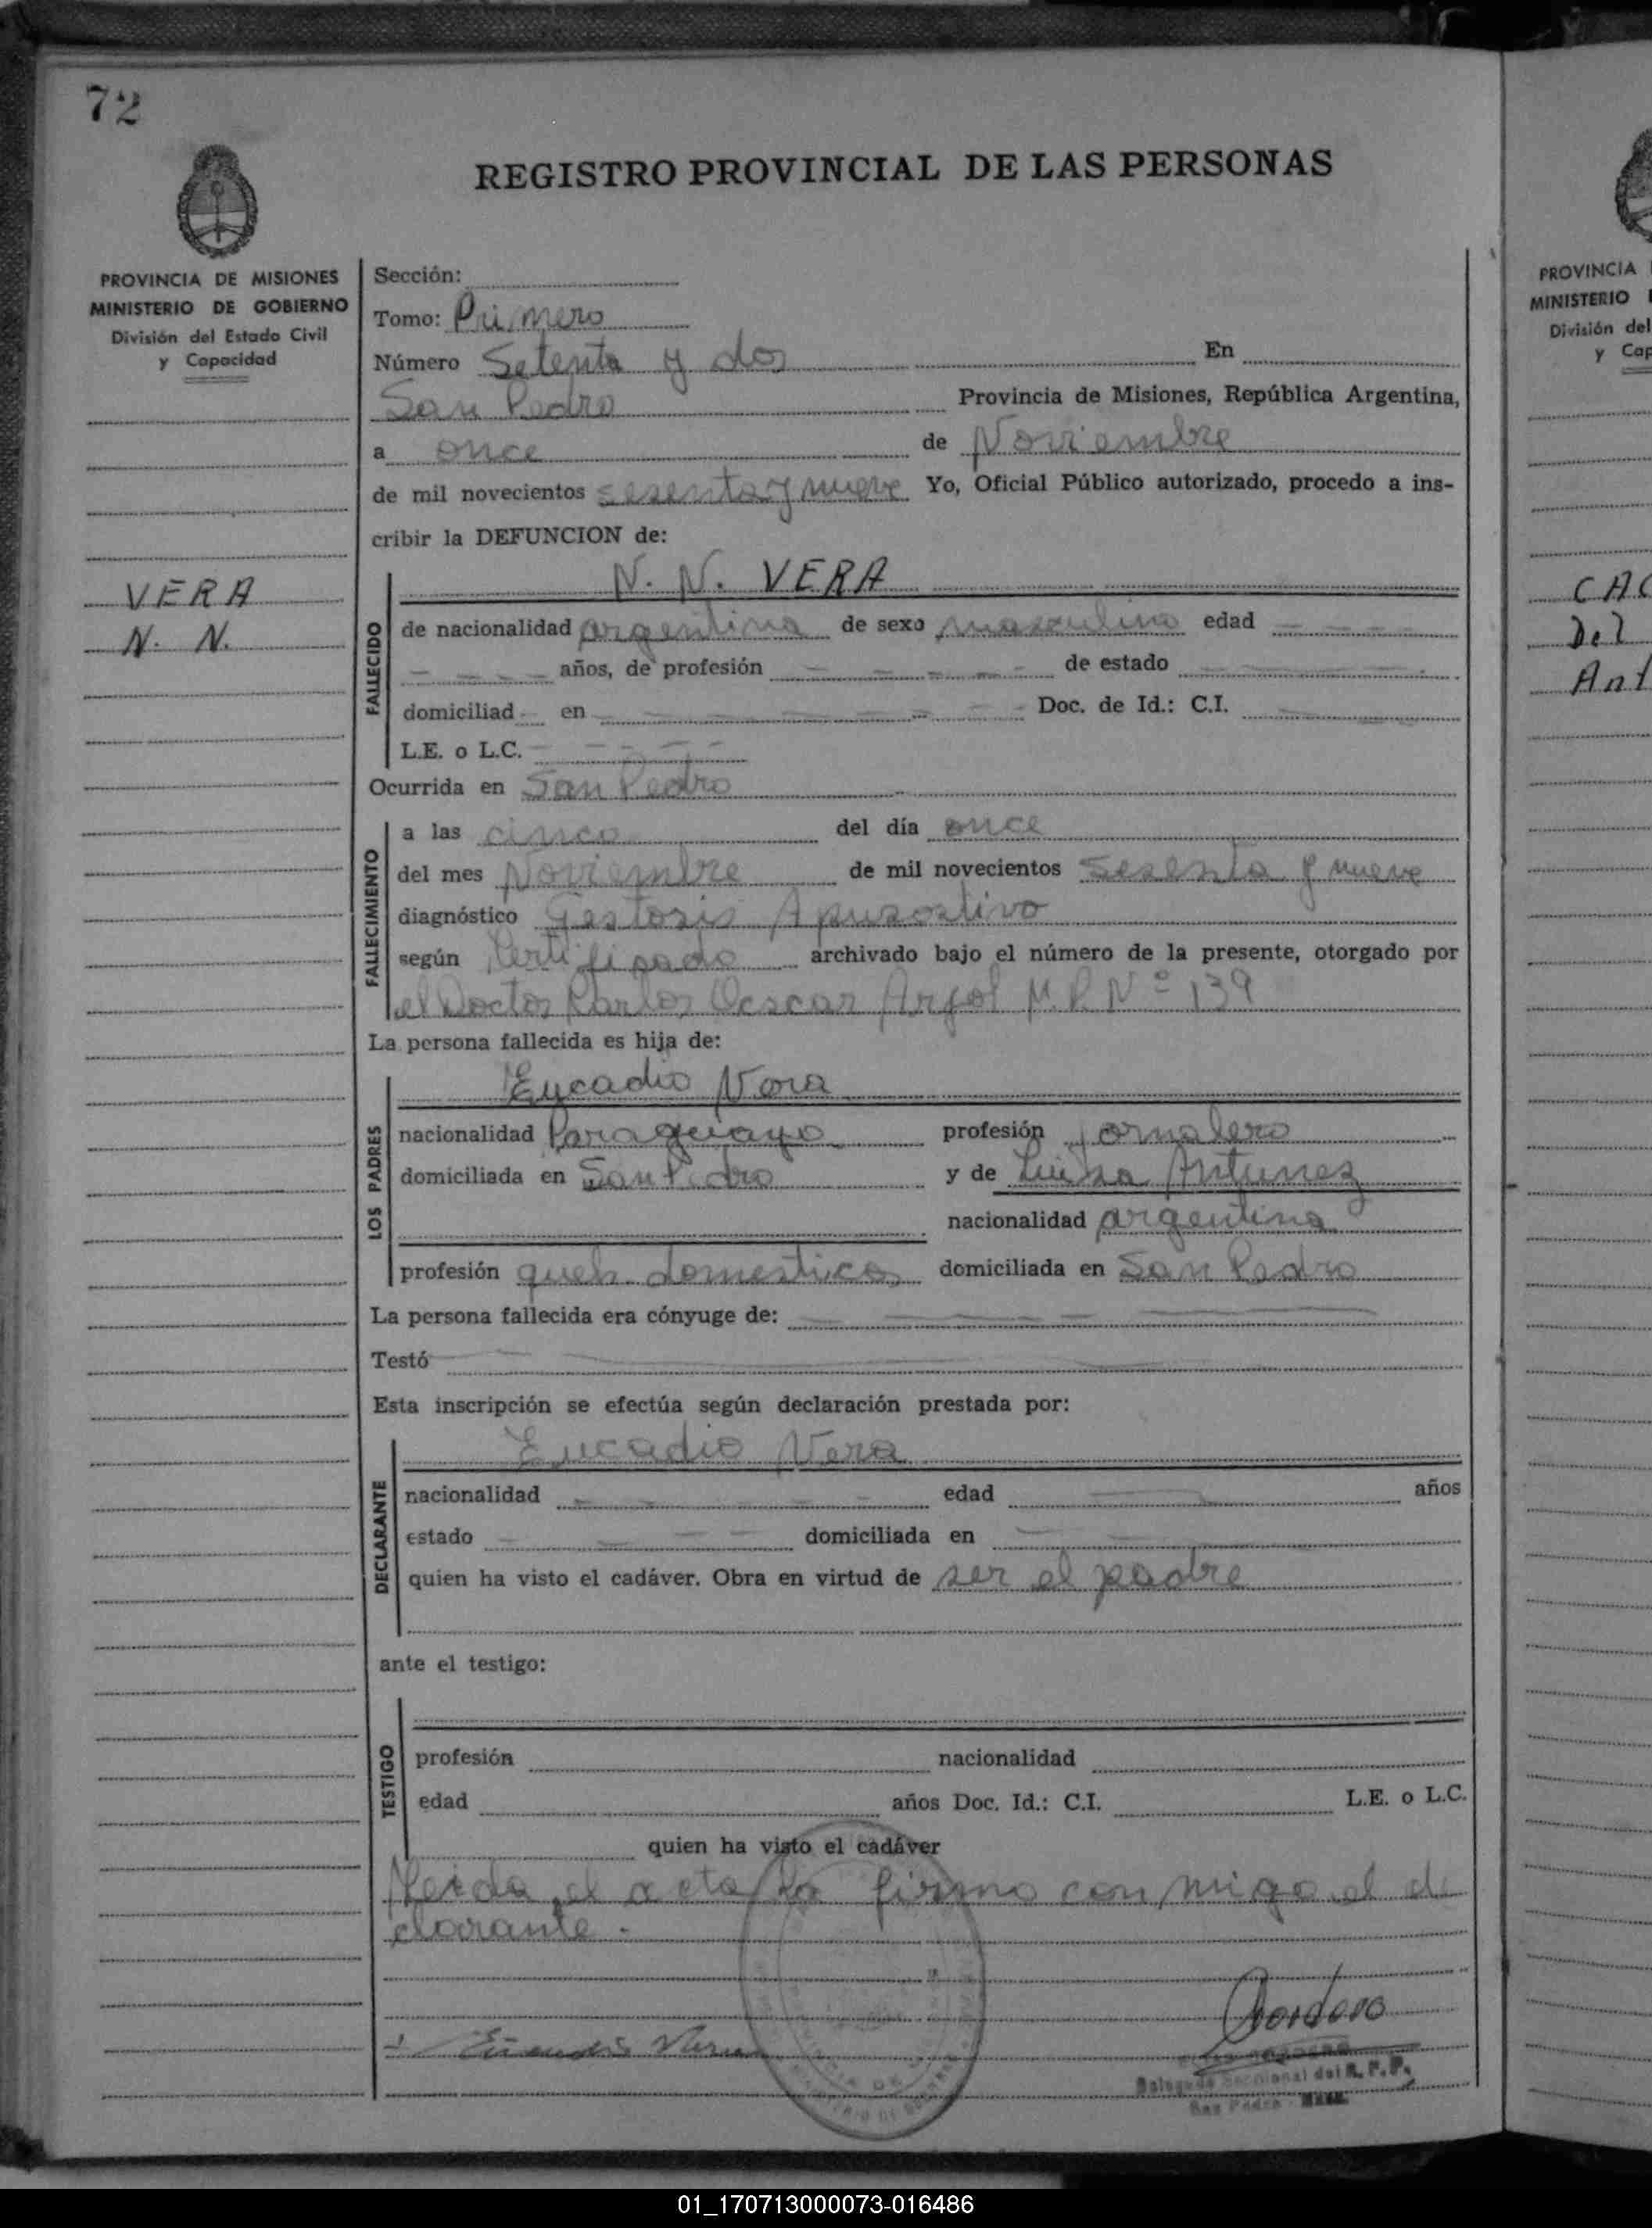 72
REGISTRO PROVINCIAL DE LAS PERSONAS
PROVINCIA DE MISIONES
MINISTERIO DE GOBIERNO
División del Estado Civil
y Capacidad
VERA
N. N.
Sección:
Tomo: Primero
Número Setenta y dos En
San Pedro Provincia de Misiones, República Argentina,
a once de Noviembre
de mil novecientos sesenta y nueve Yo, Oficial Público autorizado, procedo a ins-
cribir la DEFUNCION de:
N. N. VERA
FALLECIDO
de nacionalidad argentina de sexo masculino edad
años, de profesión de estado
domiciliad en Doc. de Id.: C.I.
L.E. o L.C.
Ocurrida en San Pedro
FALLECIMIENTO
a las cinco del día once
del mes Noviembre de mil novecientos sesenta y nueve
diagnóstico Gestosis
según Certificado archivado bajo el número de la presente, otorgado por
el Doctor Carlos Oscar Argol M.P. Nº 139
La persona fallecida es hija de:
LOS PADRES
Eucadio Vera
nacionalidad Paraguayo profesión jornalero
domiciliada en San Pedro y de Luisa Antunez
nacionalidad argentina
profesión queh. domesticos domiciliada en San Pedro
La persona fallecida era cónyuge de:
Testó
Esta inscripción se efectúa según declaración prestada por:
DECLARANTE
Eucadio Vera
nacionalidad edad años
estado domiciliada en
quien ha visto el cadáver. Obra en virtud de ser el padre
ante el testigo:
TESTIGO
profesión nacionalidad
edad años Doc. Id.: C.I. L.E. o L.C.
quien ha visto el cadáver
Leida el acta la firma con migo el de
clarante.
Delegado Seccional del R. P. P.
San Pedro - Mnes.
PROVINCIA
MINISTERIO
División del
y Cap
CAC
Del
Ant
01_170713000073-016486